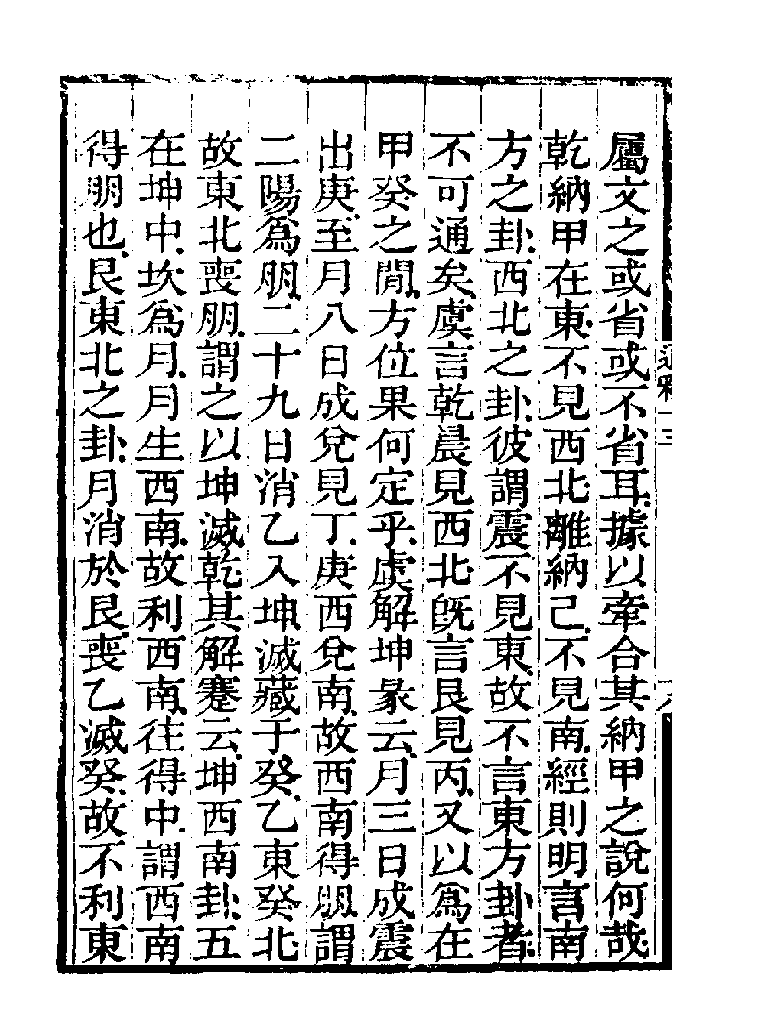 屬文之或省或不省耳據以牽合其納甲之說何哉
乾納甲在東不見西北離納己不見南經則明言南
方之卦西北之卦彼謂震不見東故不言東方卦者
不可通矣虞言乾晨見西北旣言艮見丙又以爲在
甲癸之閒方位果何定乎虞解坤彖云月三日成震
出庚至月八日成兌見丁庚西兌南故西南得朋謂
二陽爲朋二十九日消乙入坤滅藏于癸乙東癸北
故東北喪朋謂之以坤滅乾其解蹇云坤西南卦五
在坤中坎爲月月生西南故利西南往得中謂西南
得朋也艮東北之卦月消於艮喪乙滅癸故不利東
通釋十三